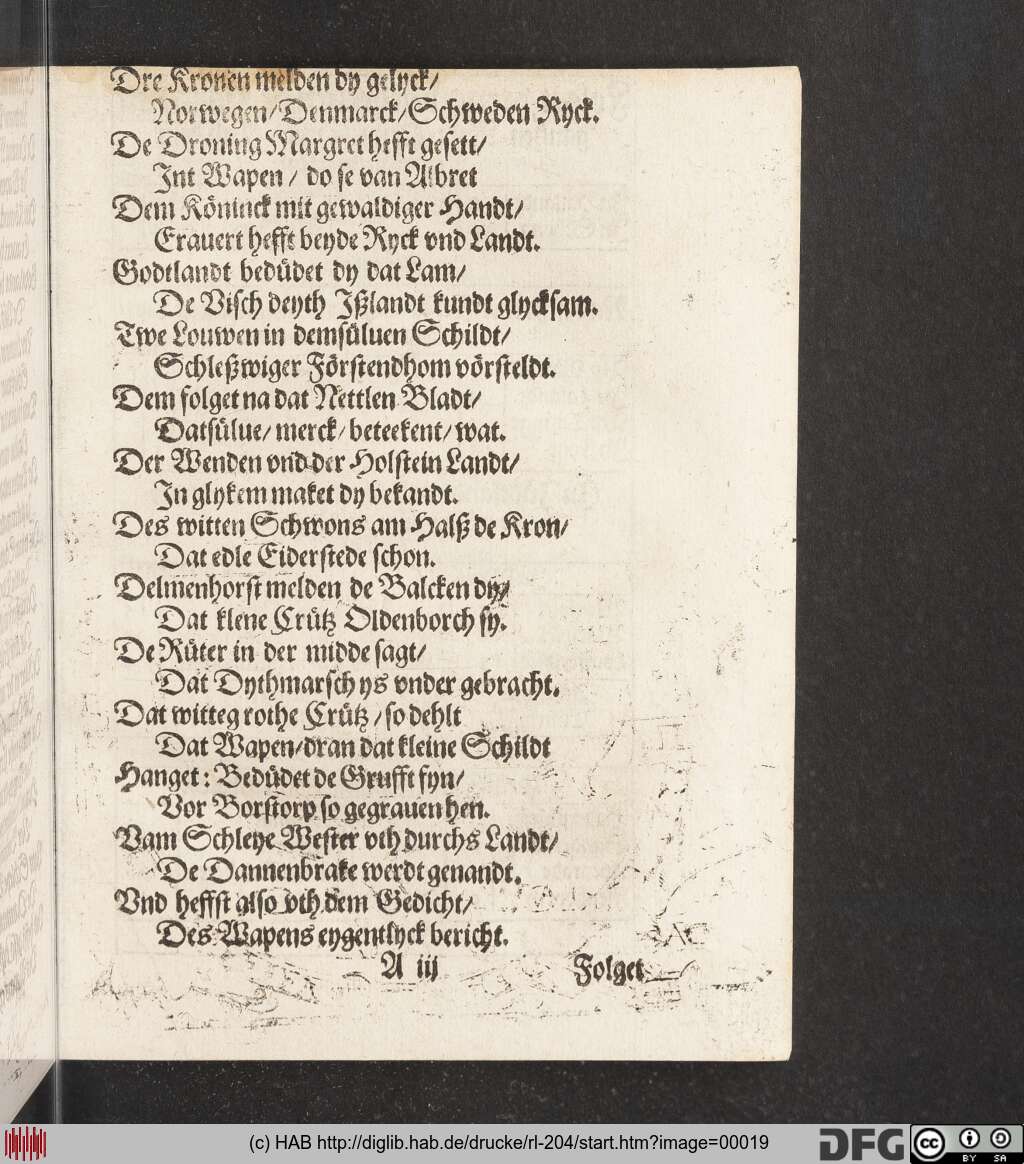 Dre Kronen melden dy gelyck/
Norwegen/Denmarck/Schweden Ryck.
De Droning Margret hefft gesett/
Int Wapen / do se van Albret
Dem Köninck mit gewaldiger Handt/
Erauert hefft beyde Ryck vnd Landt.
Godtlandt bedüdet dy dat Lam/
De Visch deyth Jßlandt kundt glycksam.
Twe Louwen in demsüluen Schildt/
Schleßwiger Förstendhom vörsteldt.
Dem folget na dat Nettlen Bladt/
Datsülue/ merck/ beteekent/ wat.
Der Wenden vnd der Holstein Landt/
In glykem maket dy bekandt.
Des witten Schwons am Halß de Kron/
Dat edle Eiderstede schon.
Delmenhorst melden de Balcken dy/
Dat klene Crütz Oldenborch sy.
De Rüter in der midde sagt/
Dat Dythmarsch ys vnder gebracht.
Dat witteg rothe Crütz /so dehlt
Dat Wapen/dran dat kleine Schildt
Hanget: Bedüdet de Grufft fyn/
Vor Borstorp so gegrauen hen.
Vam Schleye Wester vth durchs Landt/
De Dannenbrake werdt genandt.
Vnd heffst also vth dem Gedicht/
Des Wapens eygentlyck bericht.
A iij Folget
(c) HAB http://diglib.hab.de/drucke/rl-204/start.htm?image=00019
DFG cc BY SA